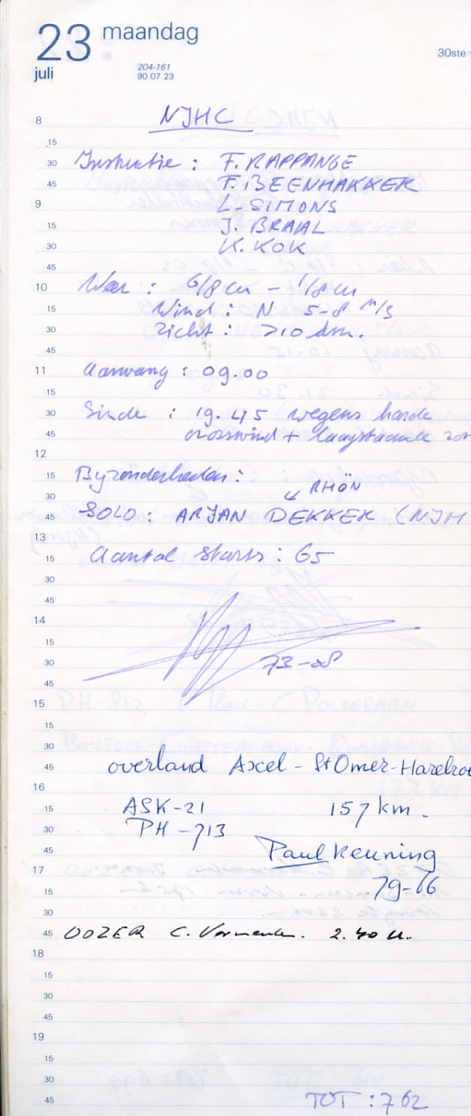 23 maandag
juli
204-161
90 07 23
30ste
8
NJHC
15
30 Instructie : F. RAPPANGE
45 F. BEENHAKKER
9 L. SIMONS
15 J. BRAAL
30 K. KOK
10 Weer : 6/8 cu - 1/8 cu
15 Wind : N 5-8 m/s
30 Zicht : >10 km.
45
11 Aanvang : 09.00
15
30 Einde : 19.45 wegens harde
45 crosswind + laagstaande zon
12
15 Byzonderheden :
30 RHÖN
45 SOLO : ARJAN DEKKER (NJH
13
15 Aantal starts : 65
30
45
14
15
30 73-08
45
15
30
45 overland Axel - St Omer -
16
15 ASK-21 157 km.
30 PH-713
45 Paul Keuning
17
15 79-16
30
45 DOZER C. 2.40 u.
18
15
30
45
19
15
30
45 TOT : 762